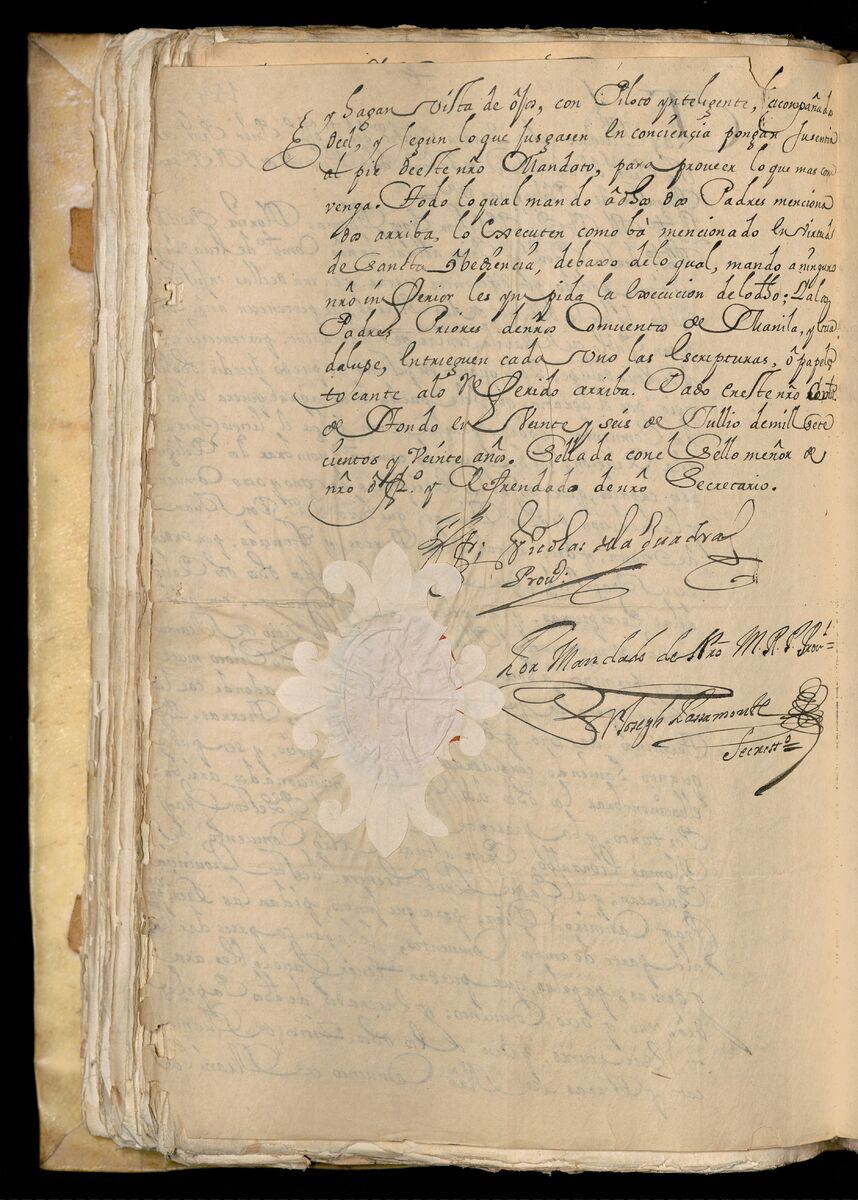 y hagan vista de ojos, con Piloto ynteligente, acompañado
y segun lo que jusgasen en conciençia pongan su sentir
al pie deeste nrõ Mandato, para proveer lo que mas con
venga. Todo lo qual mando âdhos dos Padres menciona
dos arriba, lo executen como bà mencionado en virtud
de Sancta obediençia, debaxo delo qual, mando a ninguno
nrõ inferior les ympida la execucion delodho; Y alos
Padres Priores denrõs Comventos de Manila, y Gua
dalupe, entrieguen cada uno las escripturas, ô papeles
tocante alo referido arriba. Dado en este nrõ Convto
de Tondo en veinte y seis de Jullio demill sete
cientos y veinte años. Sellada con el Sello menor de
nrõ offo. y Refrendada denrõ Secretario.
Fr; Nicolas dela Quadra
Provl:
Por Mandado de Nrõ M.R.P. Provl
Joseph Lassamonte
Secretto